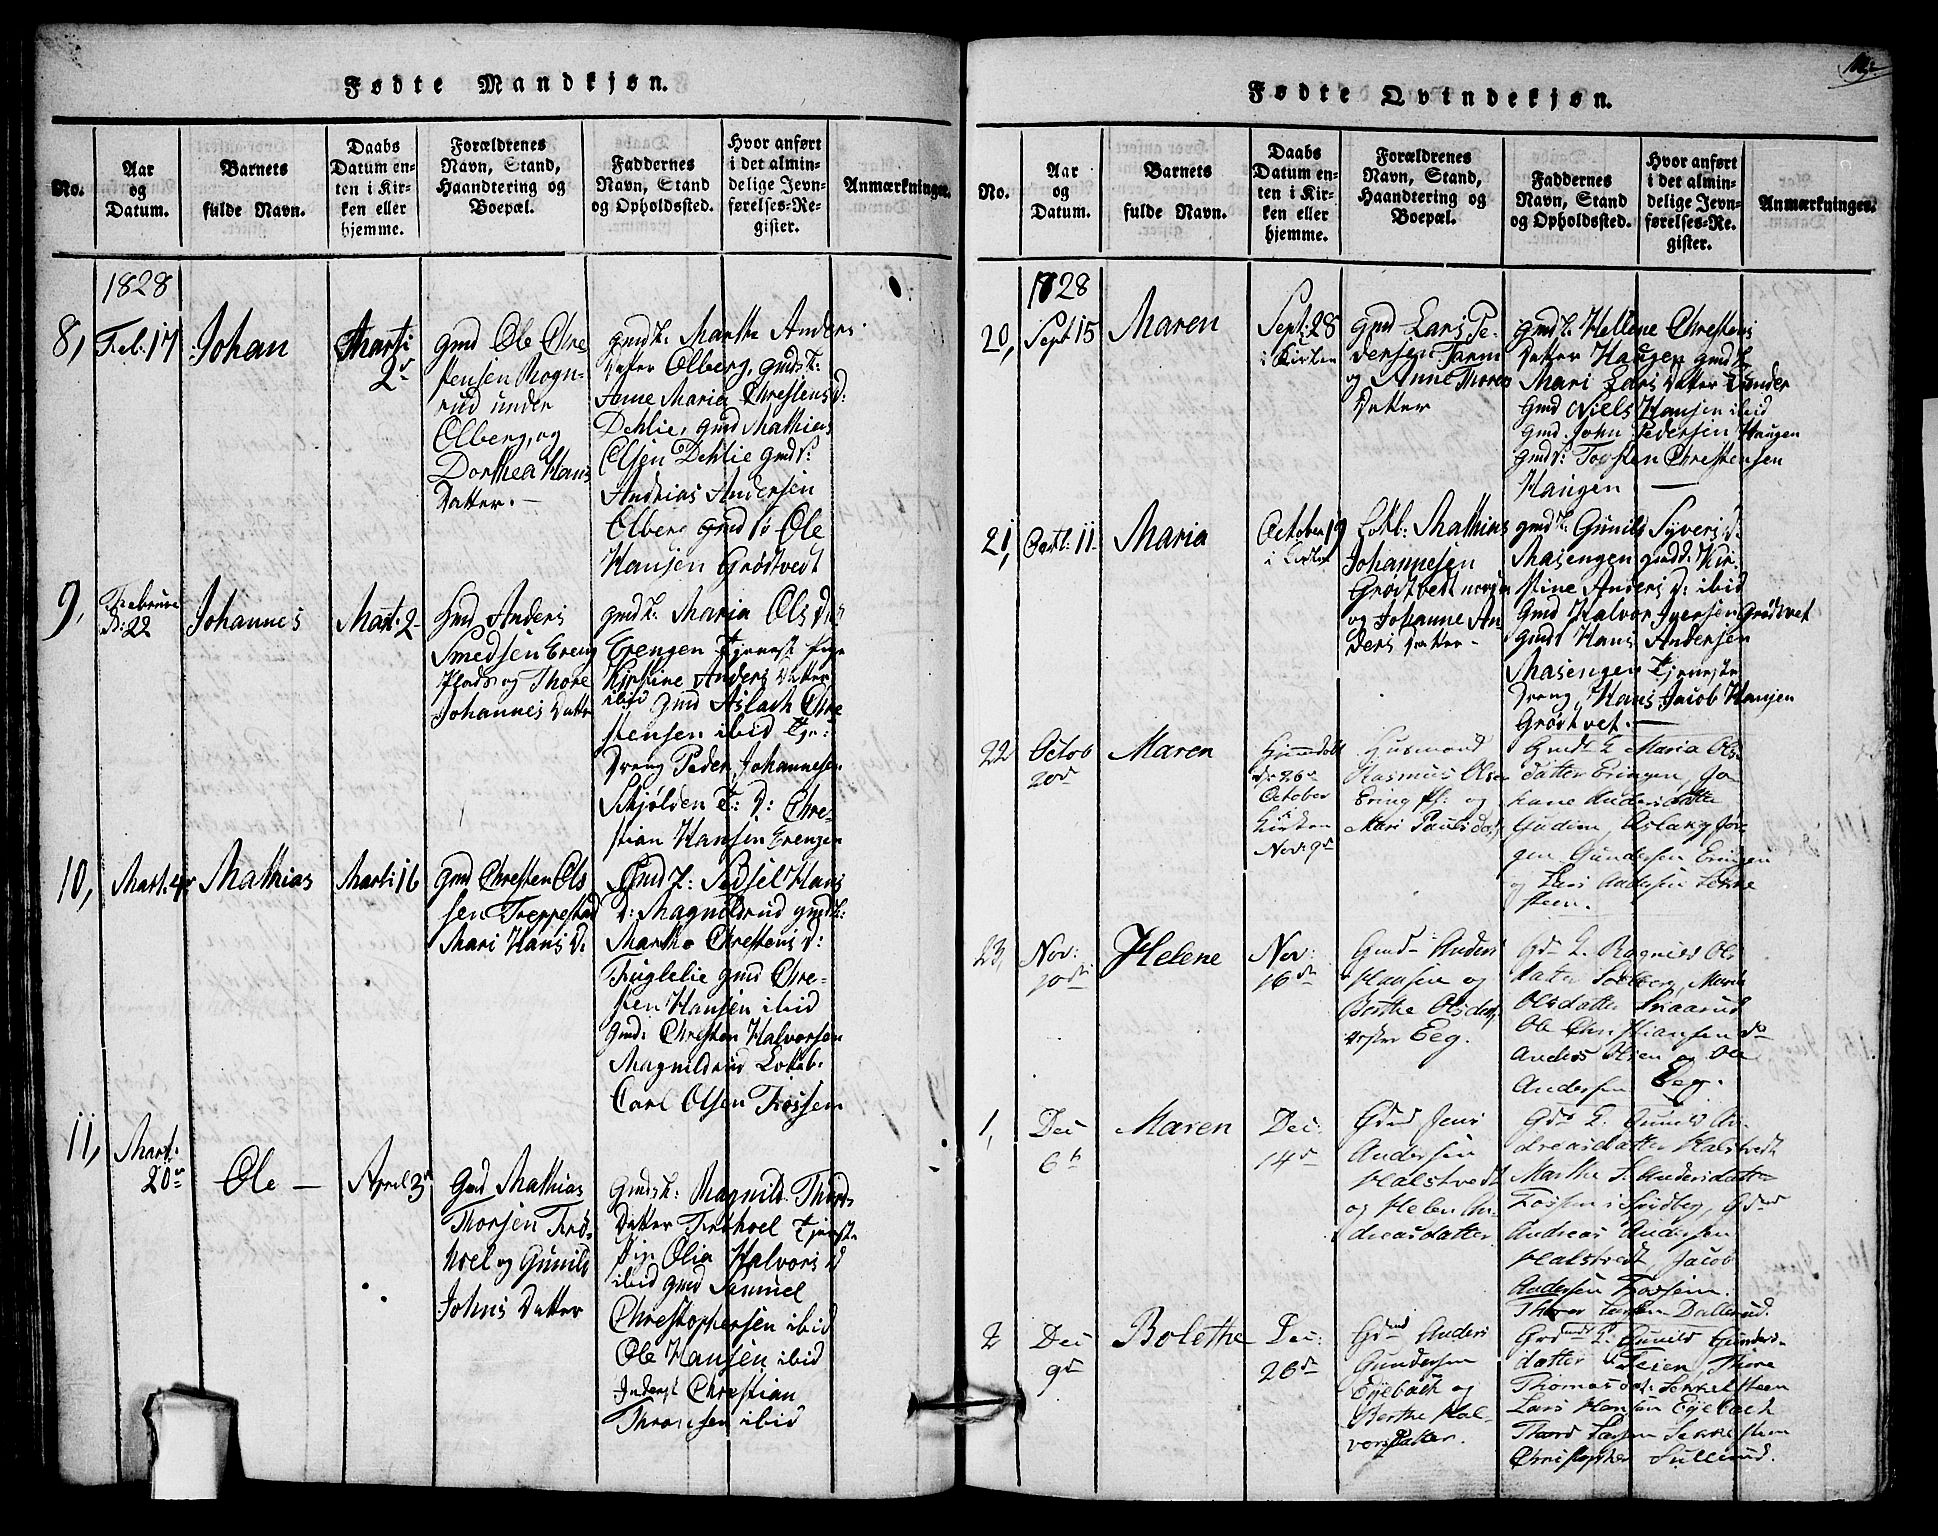 Fødte Mandkjøn.
No.
Aar
og
Datum.
Barnets
fulde Navn.
Daabs
Datum en-
ten i Kir-
ken eller
hjemme.
Forældrenes
Navn, Stand,
Haandtering og
Boepæl.
Faddernes
Navn, Stand
og Opholdssted.
Hvor anført
i det almin-
delige Jevn-
førelses-Re-
gister.
Anmærkninger.
1828
8,
Feb. 17
Johan
Marti
2d
gmd Ole Chre
stensen Rogn-
rud under
Olberg, og
Dorthea Hans
Datter. —
gmdsk. Marthe Anders
Datter Olberg, gmdsk:
Anne Maria Chrestens D:
Dehlie, gmd Mathias
Olsen Dehlie gmds:
Andreas Andersen
Olberg gmd Ole
Hansen Grødtvedt
9,
D: 22
Johannes
Mart. 2
Gmd Anders
Smedsen Ereng
Plads og Thore
Johannes Datter
gmdsk. Maria Ols D:
Erengen Tjenest Pige
Kirstine Anders Datter
ibid gmd Aslach Chre
stensen ibid Tje:
Dreng Peder Johannesen
Skjølden T: D: Chre-
stian Hansen Erengen
10,
Mart. 4
Mathias
Marti 16
gmd Chresten Ols
sen Treppestad
Mari Hans D.
Gmd K: Sidsel Hans
D: Magnildrud gmdk:
Martha Chrestens D:
Fuglelie gmd Chre-
sten Hansen ibid
gmds Chresten Halvorsen
Magnildrud
Carl Olsen Fossen
11,
Mart:
20de
Ole —
April 3d
Gmd Mathias
Thorsen Frø-
hoel og Gunild
Johns Datter
gmdsk: Magnild Thords
Datter Frøhoel Tjenst.
Pige Olia Halvors D
ibid gmd Samuel
Christophersen ibid
Ole Hansen ibid
Inderst Chrestian
ibid
Fødte Qvindekjøn.
No.
Aar
og
Datum.
Barnets
fulde Navn.
Daabs
Datum en-
ten i Kir-
ken eller
hjemme.
Forældrenes
Navn, Stand,
Haandtering og
Boepæl.
Faddernes
Navn, Stand
og Opholdssted.
Hvor anført
i det almin-
delige Jevn-
førelses-Re-
gister.
Anmærkninger.
1828
20,
Sept 15
Maren
Sept: 28
i Kirken
gmd Lars Pe-
dersen Tarm
og Anne Thores
Datter
gmdsk. Hellene Chrestens
Datter Haugen gmdk
Mari Lars Datter
Gmd Niels Hansen ibid
Gmd. John Pedersen Haugen
gmds: Torsten Chrestensen
Haugen —
21,
Octb: 11
Maria
October 19
i Kirken
Mathias
Johannesen
Grøtvedt
og Johanne An
ders Datter -
gmdk. Gunild Syvers D.
Masengen gmdd: Kir-
stine Anders D: ibid
Gmd Halvor Iversen Grødtvet
gmds Hans Andersen
Masengen Tjeneste
Dreng, Hans Jacob Hansen
Grødtvet. —
22
Octob
20d
Maren
Hjemdøbt
D: 26
October
i
Kirken
Nov: 9d
Husmand
Rasmus Olsen
Ering Pl: og
Mari Paulsdat.
Maria Ols
datter Eringen, Jo
hane Andersdatter
Gudim, Aslang Jør
gen Gundersen Eringen
og Lars Andersen Sekke
steen.
23,
Nov:
10de
Helene
Nov:
16de
Gmd Anders
Hansen og
Berthe Olsdat,
Eeg.
Gd K. Ragnild Ols
datter Solberg, Maria
Olsdatter
Ole Christiansen do
Anders Olsen og Ole
Andersen Eeg.
1,
Dec
6te
Maren
Dec:
14de
Gdmd Jens
Andersen
Halstvedt
og Helen An-
dreasdatter
Gds K. Gunild An-
dreasdatter Halstvedt
Marthe S. Andersdatter
Fossen i Svidberg, Gdmd
Andreas Andersen
Halstvedt, Jacob
Andersen Fossein.
Thor Larsen Dallerud.
2
Dec
9d
Bolethe
Dec:
26de
Gdmd Anders
Gundersen
Egebach og
Berthe Hal-
vorsdatter.
Grdmds K. Gunild Gunders-
datter Teien, Thore
Thomasdat: Sekkesteen
Lars Hansen Egebach
Thord Larsen Sekkesteen
Christopher Sullerud.